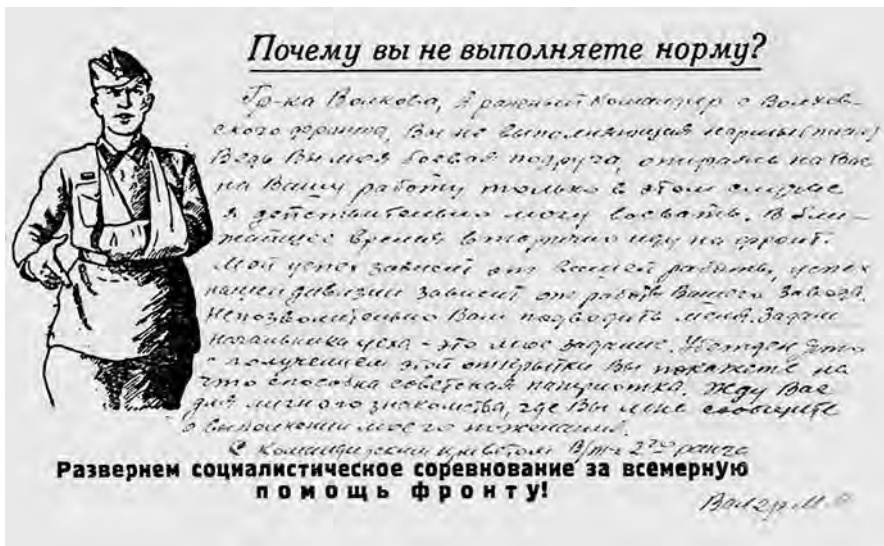 Почему вы не выполняете норму?
Гр-ка Волкова, Я раненый командир с Волхов-
ского фронта, Вы не выполняющая нормы
Ведь Вы моя боевая подруга, опираясь на Вас
на Вашу работу только в этом случае
я действительно могу воевать. В бли-
жайшее время вторично иду на фронт.
Мой успех зависит от Вашей работы, успех
нашей дивизии зависит от работы Вашего завода.
Непозволительно Вам подводить меня. Задан
начальника цеха - это мое задание. Убежден, что
с получением этой открытки Вы покажете на
что способна советская патриотка. Жду Вас
для личного знакомства, где Вы мне сообщите
о выполнении моего пожелания.
С командирским приветом В/т 2го ранга
Развернем социалистическое соревнование за всемерную
помощь фронту!